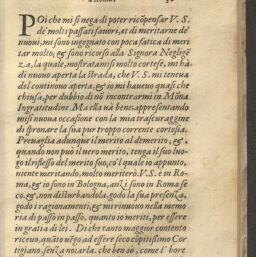 POi che mi si nega di poter ricōpensar V. S.
de' molti passati favori, et di meritarne de'
nuovi, mi sono ingegnato con poca fatica di meri
tar molto, & sono ricorso alla Signora Neglige͂
za, la quale, mostratamisi molto cortese, mi ha
di nuovo aperta la strada, che V. S. mi teneva
del continovo aperta, & io mi havevo quasi che
chiusa, per dubbio di nō incontrarmi in Mōna
Ingratitudine. Ma ella uà bene, appresentando
misi nuova occasione con la mia trascuraggine
di spronare la sua pur troppo corrente cortesia.
Prevaglia adunque il merito al demerito, &,
quando non può il vero merito, tenga il suo luo-
go il riflesso del merito suo, co'l quale io appunto,
niente meritando, molto meriterò. V. S. è in Ro-
ma, & io sono in Bologna, anzi sono in Roma se
co, &, non disturbandola, godo la sua presenza,
godo i ragionamenti, & mi rinuovo nella memo
ria di passo in passo, quanto io meriti, per essere
in gratia di lei. Di che tanto maggior contento
ricevo, quāto uēgo ad essere seco cōpitissimo Cor
tigiano, senza noiarla. che ben sò, come l'hore